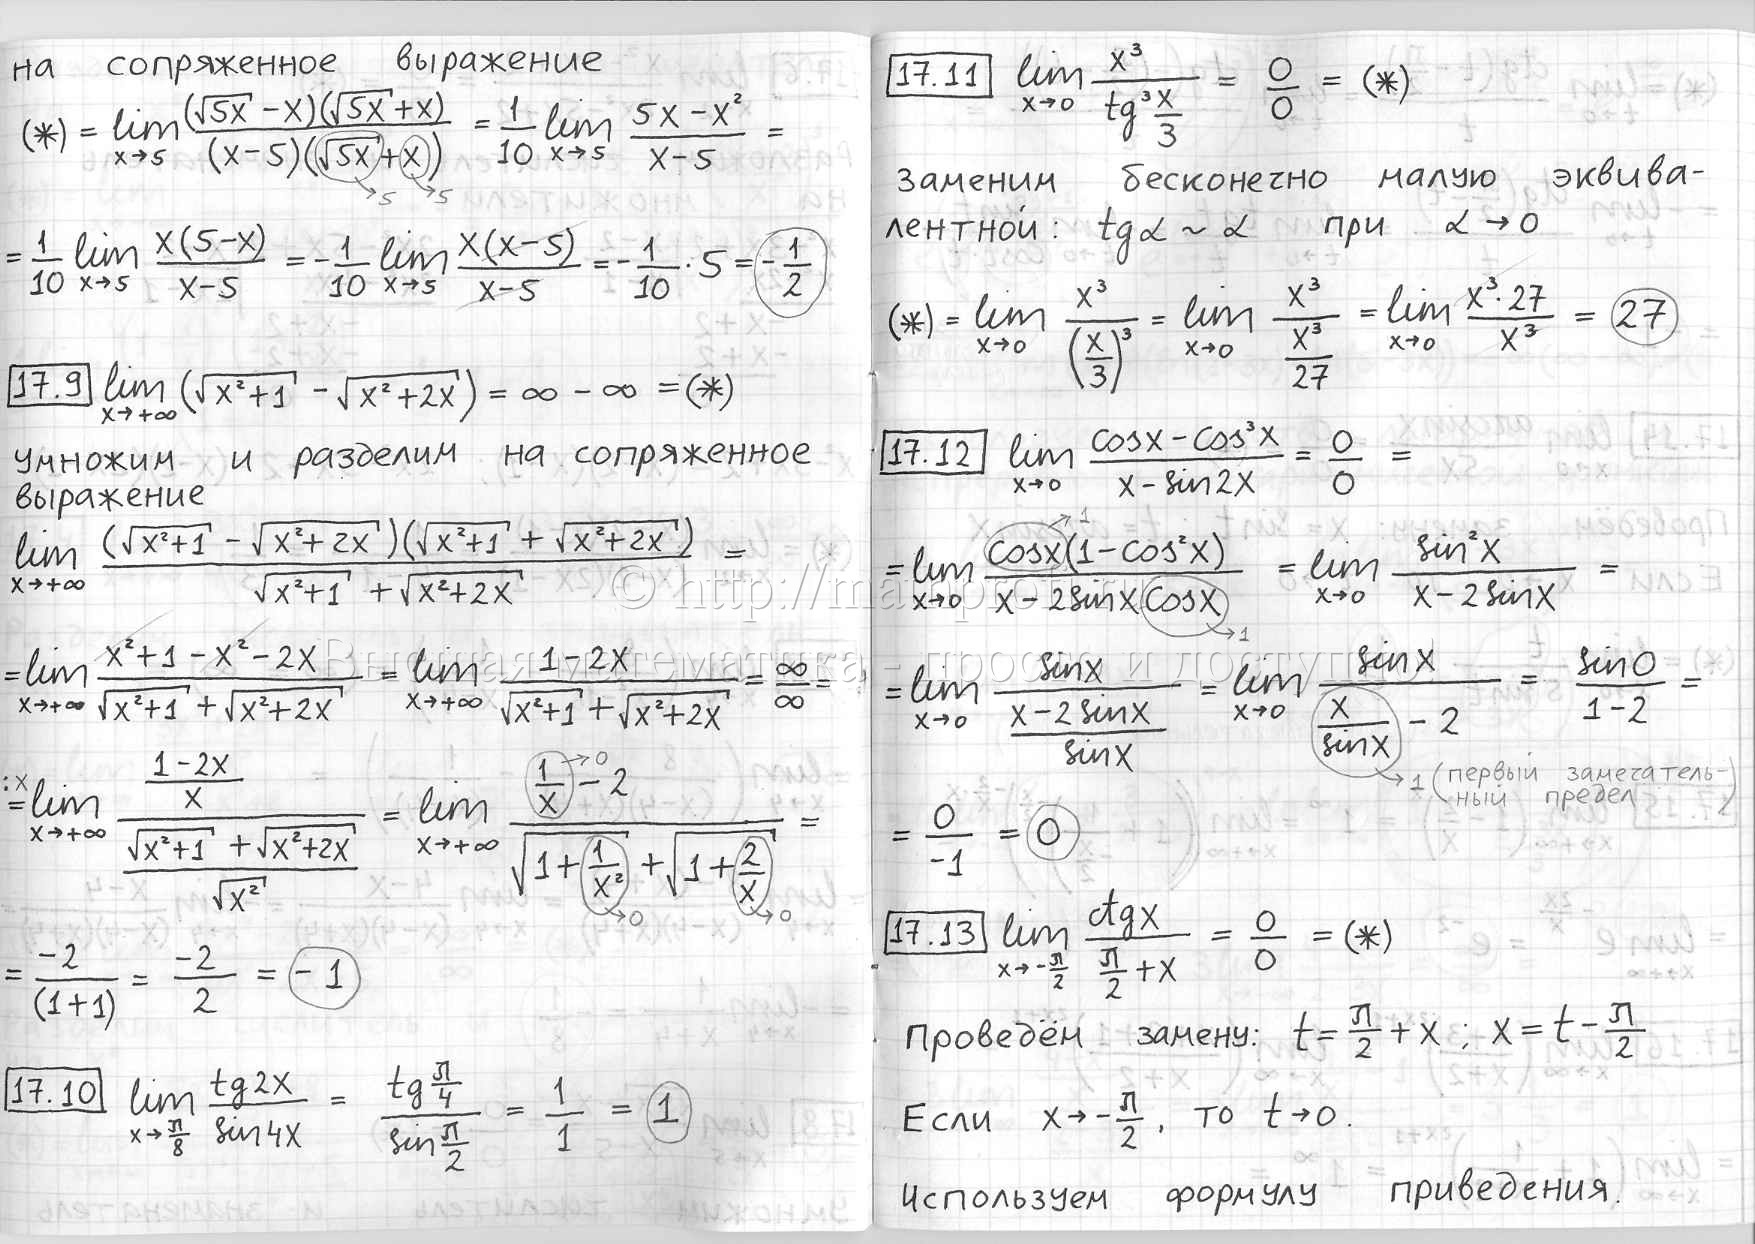 на сопряженное выражение
(*) = lim x→5 (√5x − x)(√5x + x) / (x−5)(√5x + x) = 1/10 lim x→5 (5x − x²)/(x−5) =
→5 →5
= 1/10 lim x→5 x(5−x)/(x−5) = −1/10 lim x→5 x(x−5)/(x−5) = −1/10 · 5 = −1/2
17.9 lim x→+∞ (√x²+1 − √x²+2x) = ∞ − ∞ = (*)
Умножим и разделим на сопряженное
выражение
lim x→+∞ (√x²+1 − √x²+2x)(√x²+1 + √x²+2x) / (√x²+1 + √x²+2x) =
= lim x→+∞ (x²+1 − x² − 2x)/(√x²+1 + √x²+2x) = lim x→+∞ (1−2x)/(√x²+1 + √x²+2x) = ∞/∞ =
:x = lim x→+∞ ((1−2x)/x) / ((√x²+1 + √x²+2x)/√x²) = lim x→+∞ (1/x − 2)/(√1+1/x² + √1+2/x) =
→0 →0 →0
= −2/(1+1) = −2/2 = −1
17.10 lim x→π/8 tg2x/sin4x = tg π/4 / sin π/2 = 1/1 = 1
17.11 lim x→0 x³/tg³ x/3 = 0/0 = (*)
Заменим бесконечно малую эквива-
лентной: tgα ~ α при α → 0
(*) = lim x→0 x³/(x/3)³ = lim x→0 x³/(x³/27) = lim x→0 x³·27/x³ = 27
17.12 lim x→0 (cosx − cos³x)/(x − sin2x) = 0/0 =
→1
= lim x→0 cosx(1−cos²x)/(x − 2sinx cosx) = lim x→0 sin²x/(x − 2sinx) =
→1
= lim x→0 sinx/((x−2sinx)/sinx) = lim x→0 sinx/(x/sinx − 2) = sin0/(1−2) =
→1 (первый замечатель-
ный предел
= 0/−1 = 0
17.13 lim x→−π/2 ctgx/(π/2 + x) = 0/0 = (*)
Проведём замену: t = π/2 + x; x = t − π/2
Если x → −π/2, то t → 0.
Используем формулу приведения.